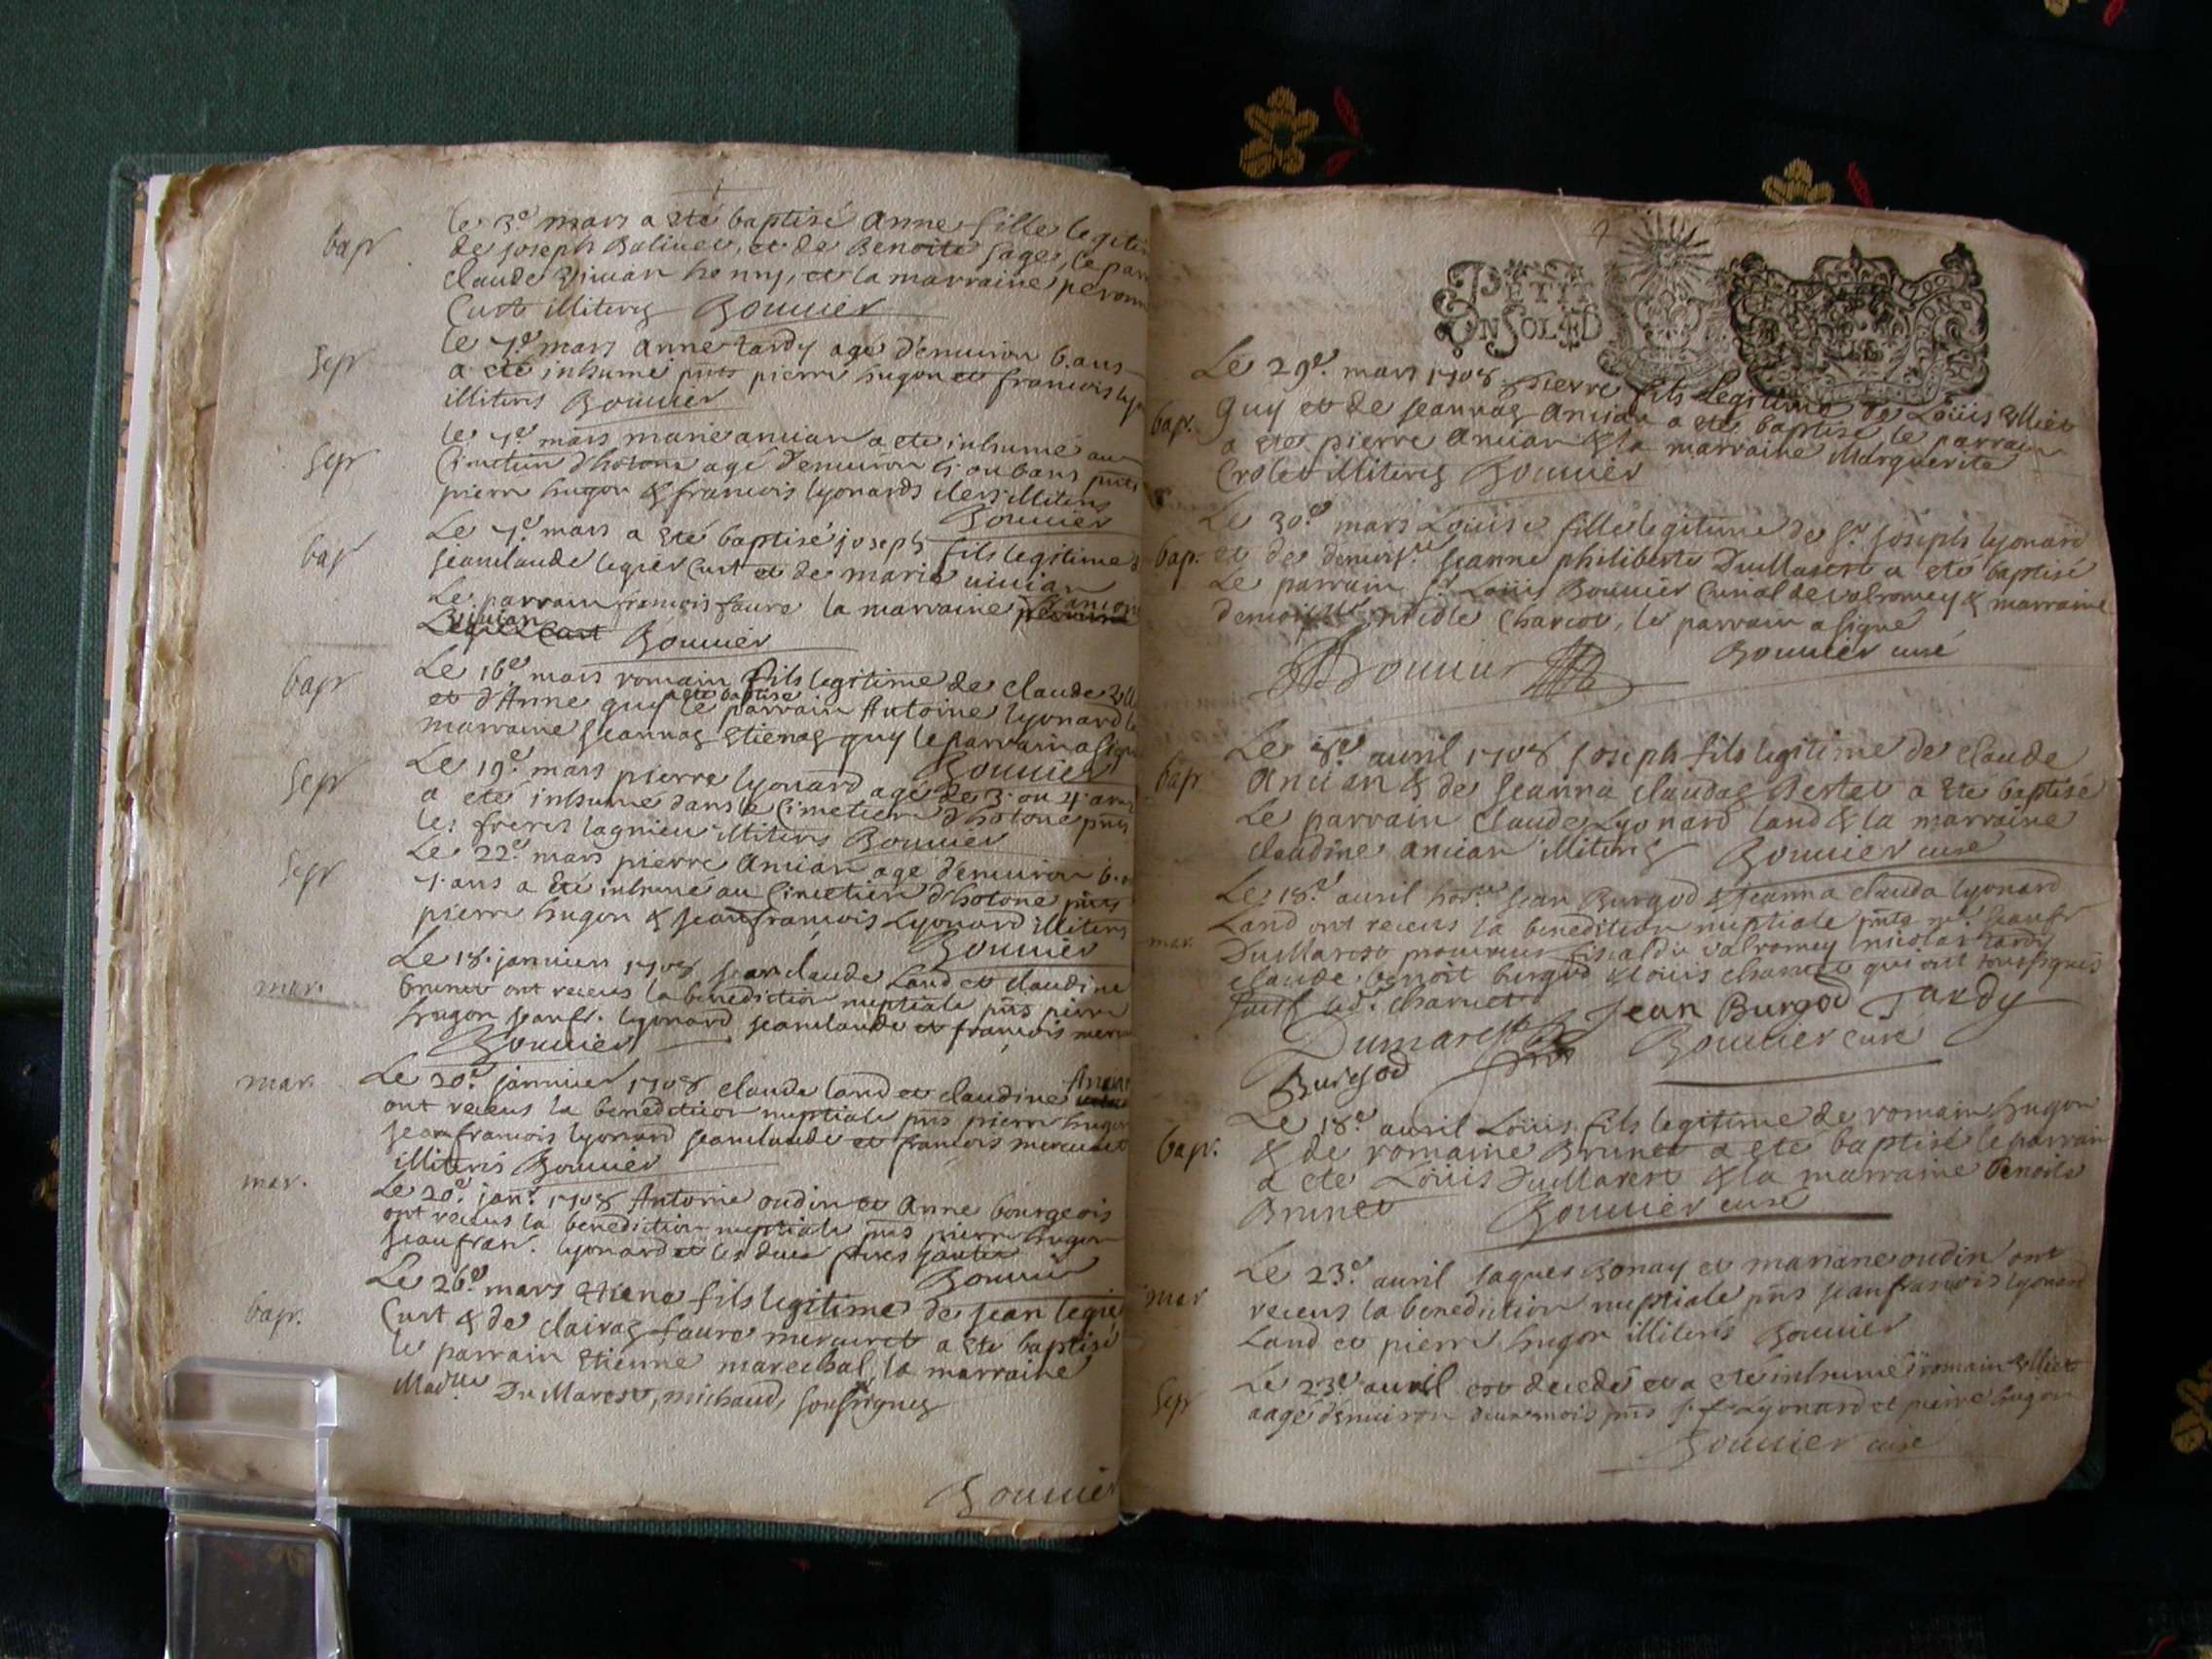 bapt
le 3e mars a eté baptisé anne fille legiti
de joseph Baliuet, et de Benoite sage, le par
claude viuian henry, et la marraine peronn
Curt illiteris Bouuier
sepr
le 7e mars anne tardy agé d'enuiron 6. ans
a eté inhumé pnts pierre hugon et francois lyo
illiteris Bouuier
sepr
le 7e mars marie anuian a ete inhumé au
Cimetiere d'hotone agé d'enuiron 5 ou 6 ans pnts
pierre hugon & francois lyonards clers illiteris
Bouuier
bapt
Le 7e mars a eté baptisé joseph fils legitime d
jeanclaude legier Curt et de marie uiuian
Le parrain francois faure la marraine francoise
Viuian Bouuier
bapt
Le 16e mars romain fils legitime de claude
et d'Anne guy a eté baptisé le parrain Antoine lyonard l
marraine jeannaz Etienaz guy le parrain a signé
Bouuier
sepr
Le 19e mars pierre lyonard agé de 3. ou 4. ans
a eté inhumé dans le Cimetiere d'hotone pnts
les freres lagnieu illiteris Bouuier
sepr
Le 22e mars pierre Anuian agé d'enuiron 6. o
7. ans a eté inhumé au Cimetiere d'hotone pnts
pierre hugon & jeanfrancois Lyonard illiteris
Bouuier
mar.
Le 18. januier 1708 jean claude Land et claudine
brunet ont receus la benediction nuptiale pnts pierre
hugon jeanfr. lyonard jeanclaude et francois mer
Bouuier
mar.
Le 20e januier 1708 claude land et claudine Anuian
ont receus la benediction nuptiale pnts pierre hugon
jeanfrancois lyonard jeanclaude et francois mercuret
illiteris Bouuier
mar.
Le 20e jan. 1708 Antoine oudin et Anne bourgeois
ont receus la benediction nuptiale pnts pierre hugon
jeanfran. lyonard et les deux freres
Bouuier
bapt.
Le 26e mars Etiene fils legitime de jean legie
Curt & de clairaz faure mercuret a eté baptisé
le parrain Etienne marechal, la marraine
Madlle Du Marest, michaud, soussignez
Bouuier
PETIT
EN SOL 4 D
bapt.
Le 29e mars 1708 pierre fils legitime de Loüis Elliet
guy et de jeannaz Anuian a eté baptisé le parrain
a eté pierre Anuian & la marraine Marguerite
Crolet illiteris Bouuier
bap.
Le 30e mars Loüise fille legitime de Sr joseph lyonard
et de demoiselle jeanne philiberte DuMarest a eté baptisé
Le parrain Sr Loüis Bouuier Curial de valromey & marraine
Chariot, le parrain a signé
Bouuier Bouuier curé
bapt
Le 8e auril 1708 joseph fils legitime de claude
Anuian & de jeanna claudaz Bertet a eté baptisé
Le parrain Claude Lyonard land & la marraine
claudine anuian illiteris Bouuier curé
mar.
Le 18e auril hon. jean Burgod & jeanna clauda lyonard
Land ont receus la benediction nuptiale pnts Mr jeanfr
DuMarest procureur fiscal du valromey nicolas tardy
claude benoit burgod & louis charuet qui ont tous signés
sauf led. charuet
Dumarest Jean Burgod Tardy
Burgod Bouuier curé
bapt.
Le 18e auril Loüis fils legitime de romain hugon
& de romaine Brunet a eté baptisé le parrain
a ete Loüis DuMarest & la marraine Benoite
Brunet Bouuier curé
mar
Le 23e auril jaques Bonay et mariane oudin ont
receus la benediction nuptiale pnts jeanfrancois lyonard
Land et pierre hugon illiteris Bouuier
sepr
Le 23e auril est decedé et a eté inhumé romain Elliet
aagé d'enuiron deux mois pnts j. f. Lyonard et pierre hugon
Bouuier curé